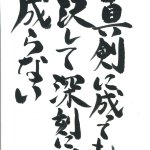 真剣に成ても
決して深刻に
成らない